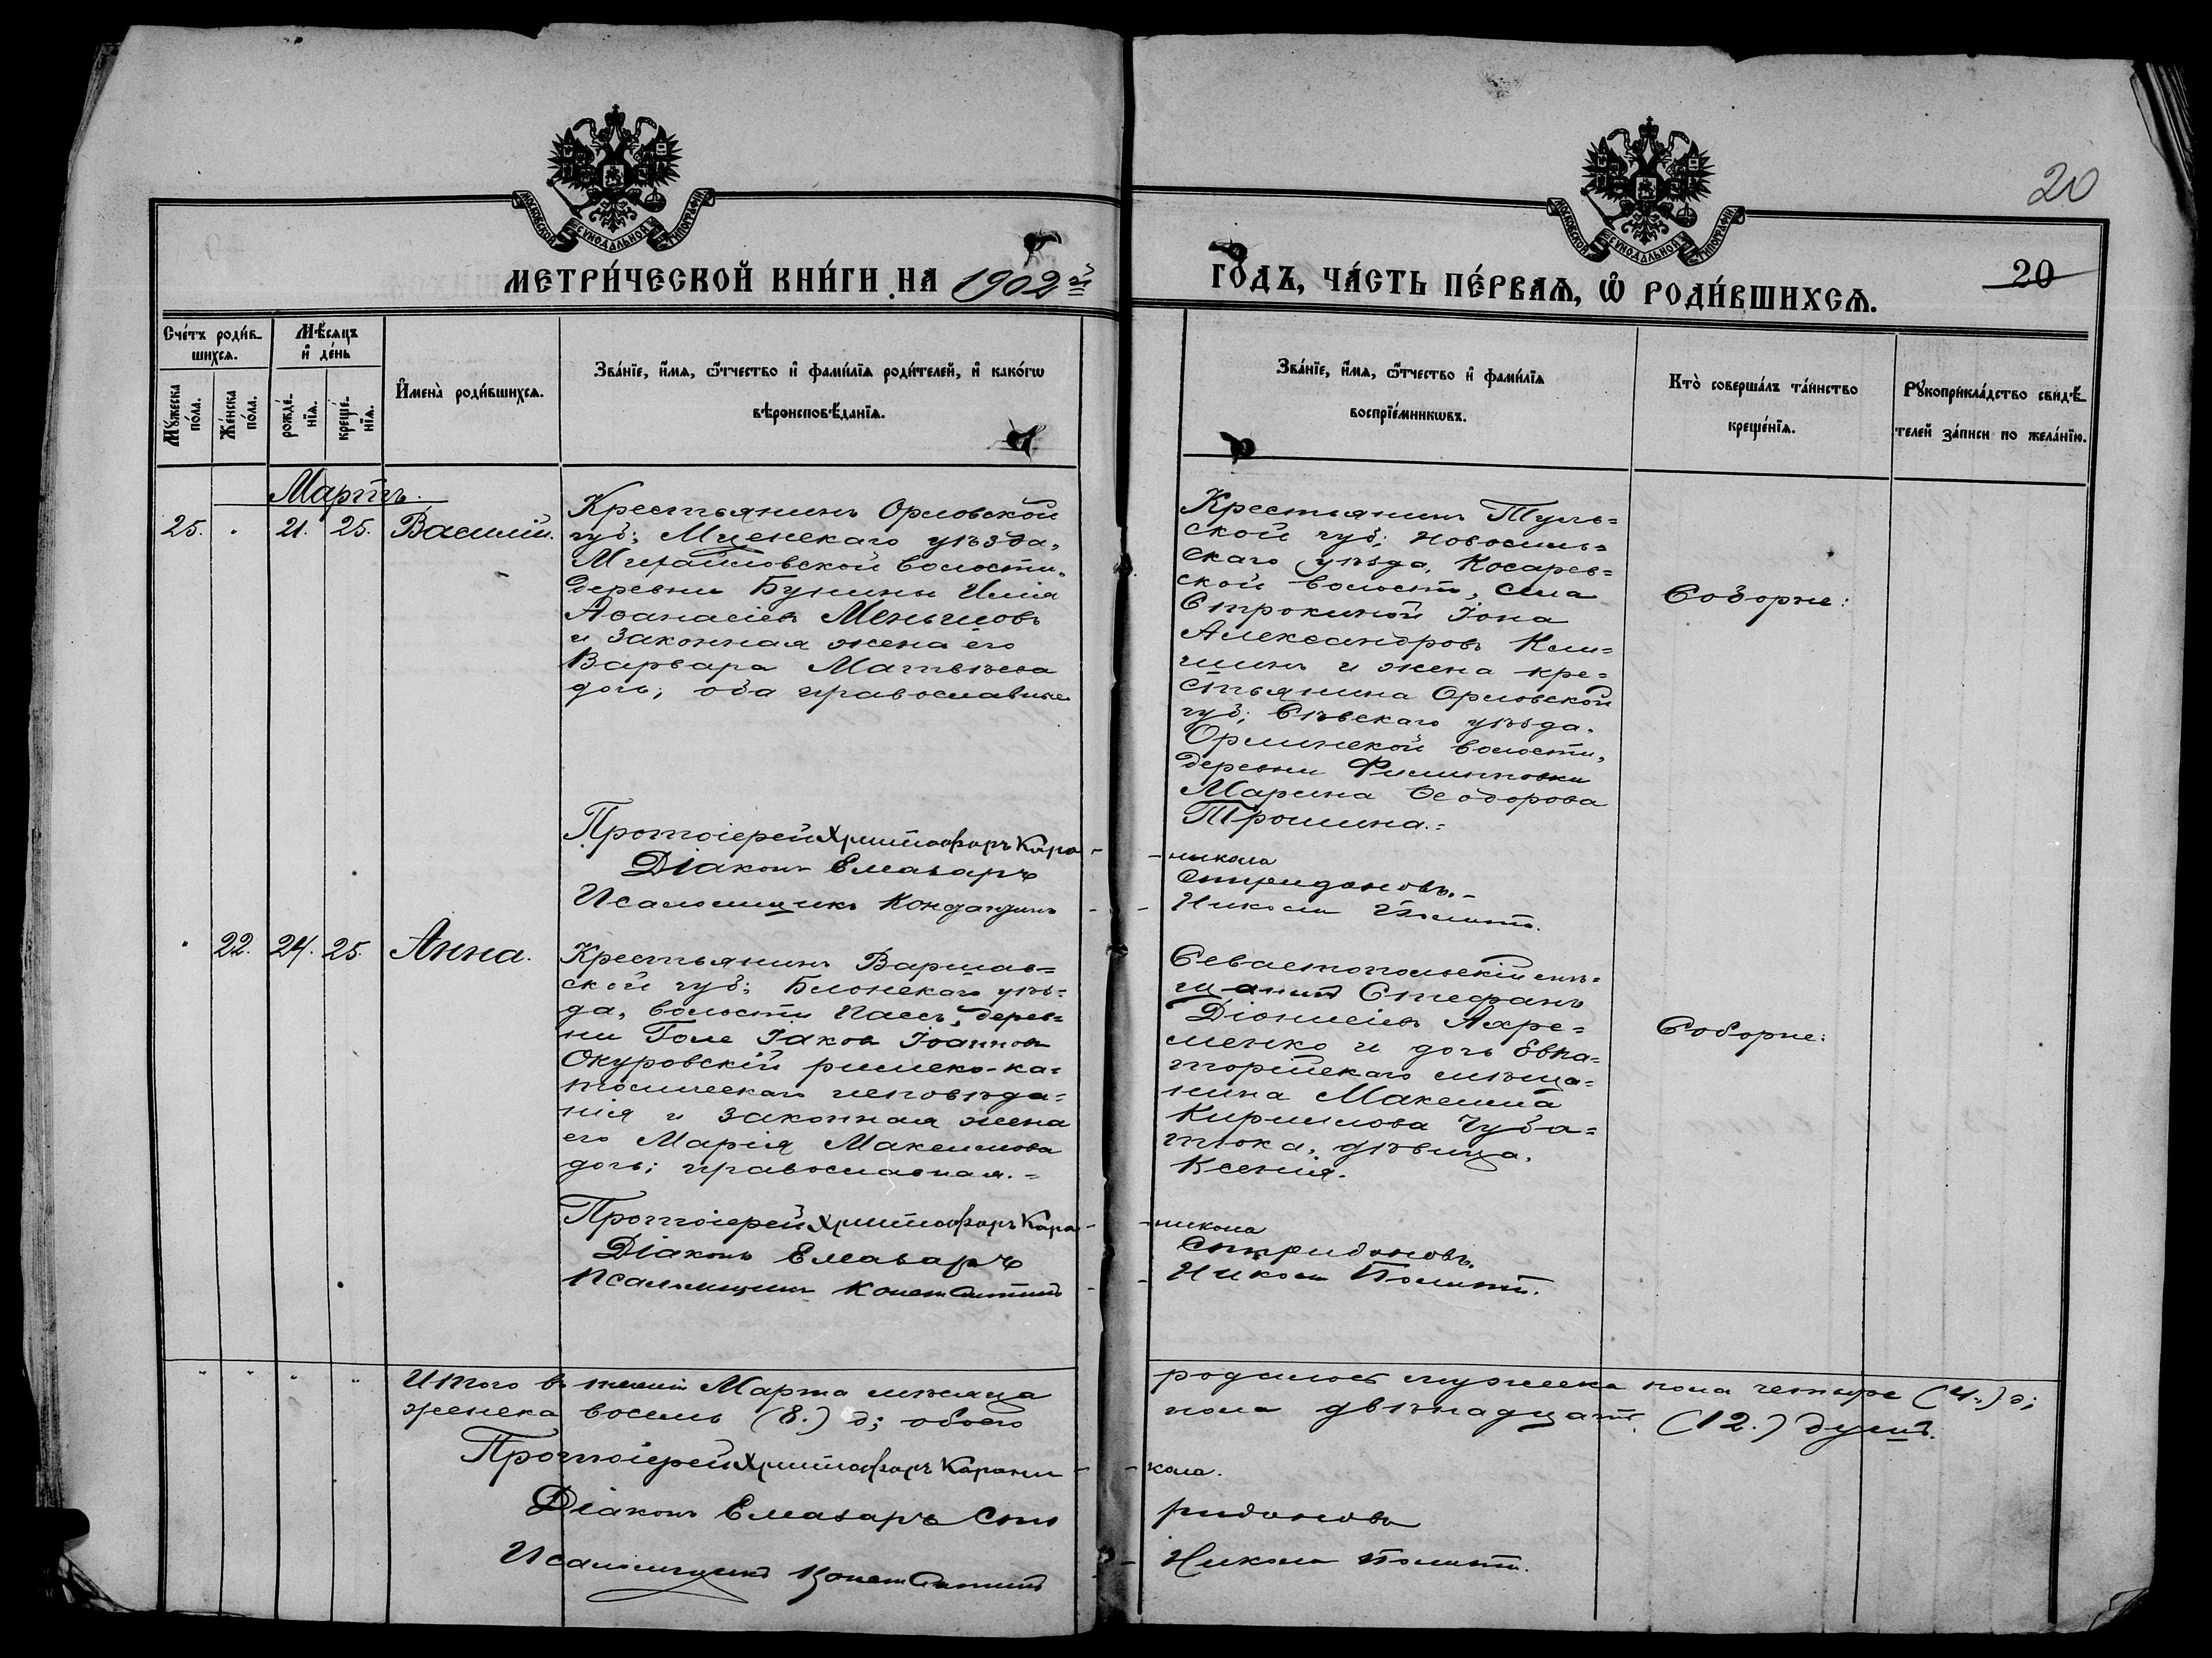 20
МОСКОВСКОЙ СѴНОДАЛЬНОЙ ТИПОГРАФІИ
МОСКОВСКОЙ СѴНОДАЛЬНОЙ ТИПОГРАФІИ
МЕТРИ́ЧЕСКОЙ КНИ́ГИ НА 1902й
ГО́ДЪ, ЧА́СТЬ ПЕ́РВАѦ, Ѡ҆ РОДИ́ВШИХСѦ.
20
Сче́тъ роди́в-
шихсѧ.
Мꙋжеска по́ла.
Же́нска по́ла.
Мѣ́сѧцъ
и҆ де́нь
рожде́-
нїѧ.
креще́-
нїѧ.
И҆мена̀ роди́вшихсѧ.
Зва́нїе, и҆́мѧ, ѻ҆́тчество и҆ фами́лїѧ роди́телей, и҆ како́гѡ
вѣроисповѣ́данїѧ.
Зва́нїе, и҆́мѧ, ѻ҆́тчество и҆ фами́лїѧ
воспрїе́мникѡвъ.
Кто̀ соверша́лъ та́инство
креще́нїѧ.
Рꙋкоприкла́дство свидѣ́-
телей за́писи по жела́нїю.
Мартъ.
25. 21. 25. Василій.
Крестьянинъ Орловской
губ; Мценскаго уѣзда,
Михайловской волости,
деревни Бунины Илія
Аѳанасіевъ Меньшовъ
и законная жена его
Варвара Матвѣева
дочь; оба православные
Протоіерей Христофоръ Кара-
Діаконъ Елеазаръ
Псаломщикъ
Крестьянинъ Туль=
ской губ; Новосиль=
скаго уѣзда, Косарев=
ской волости, села
Строкиной Іона
Александровъ
и жена кре=
стьянина Орловской
губ; Сѣвскаго уѣзда,
волости,
деревни Филипповки
Марина Ѳеодорова
Трошина.=
Соборне:
-никола
Спиридоновъ.-
Никола Политъ.
22. 24. 25. Анна.
Крестьянинъ Варшав=
ской губ; Блонскаго уѣз=
да, волости Пассъ, дерев=
ни Голе Іаковъ Іоанновъ
Окуровскій римско-ка=
толическаго исповѣда=
нія и законная жена
его Марія Максимова
дочь; православная.=
Протоіерей Христофоръ Кара-
Діаконъ Елеазаръ
Псаломщикъ Константинъ
Севастопольскій мѣ=
щанинъ Стефанъ
Діонисіевъ Ахре=
менко и дочь Евпа=
торійскаго мѣща=
нина Максима
Кириллова Чуба=
тюка, дѣвица,
Ксенія.
Соборне:
-никола
Спиридоновъ.
Никола Политъ.
Итого въ теченіи Марта мѣсяца родилось мужеска пола четыре (4.) д;
женска восемь (8.) д; обоего пола двѣнадцать (12.) душъ.
Протоіерей Христофоръ Карани-кола.
Діаконъ Елеазаръ Спиридоновъ
Псаломщикъ Константинъ Никола Политъ.